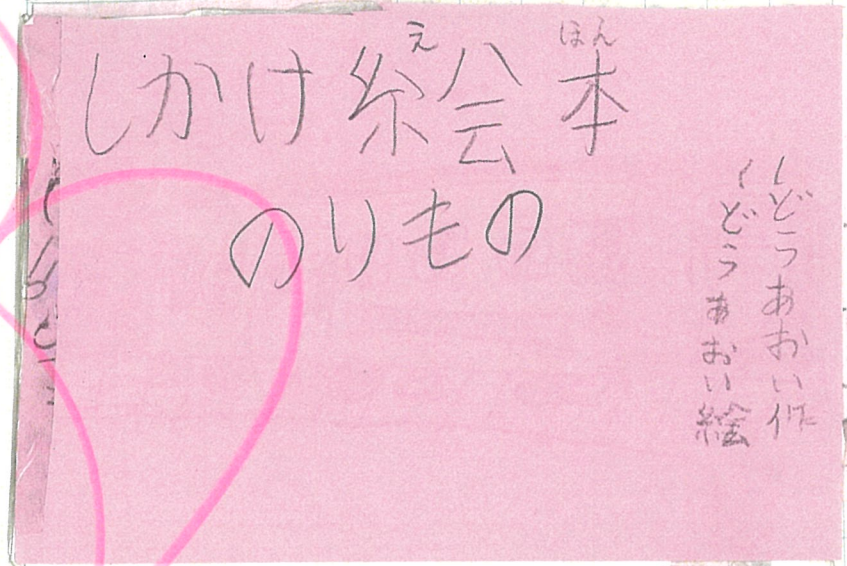 しかけ絵本
え ほん
のりもの
くどうあおい作
くどうあおい絵